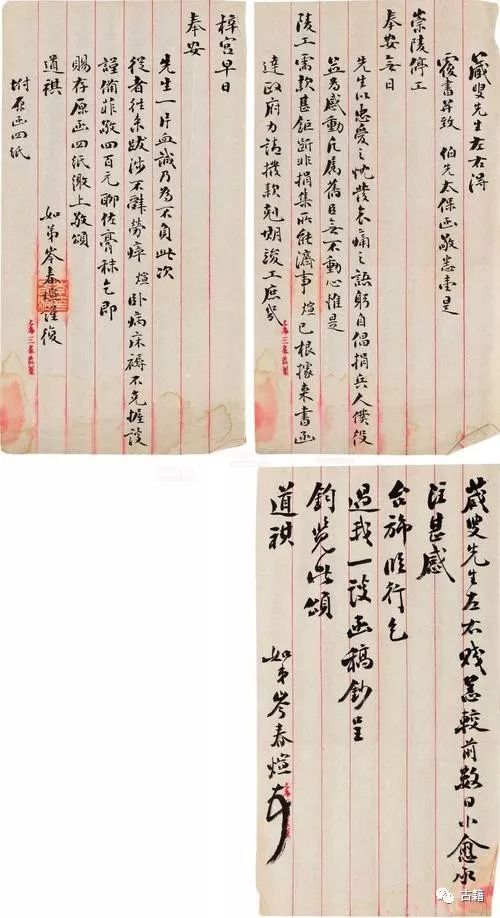 藏叟先生左右得
覆書并致 伯先太保函敬悉壹是
崇陵停工
奉安無日
先生以忠愛之忱發哀痛之語躬自倡捐兵人僕役
益為感動凡屬舊臣無不動心惟是
陵工需款甚鉅斷非捐集所能濟事煊已根據来書函
達政府力請撥款剋期竣工庶幾
梓宮早日
奉安
先生一片血誠乃為不負此次
從者往来跋涉不辭勞瘁煊卧病床蓐不克握談
謹備菲敬四百元聊佐膏秣乞即
賜存原函四紙繳上敬頌
道祺
如弟岑春煊謹復
附原函四紙
藏叟先生左右賤恙較前数日小愈承
注甚感
台旆臨行乞
過我一談函稿鈔呈
鈞覽此頌
道祺
如弟岑春煊
古籍